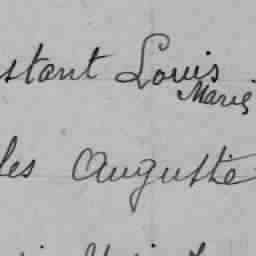 stant Louis
Marie
les Auguste